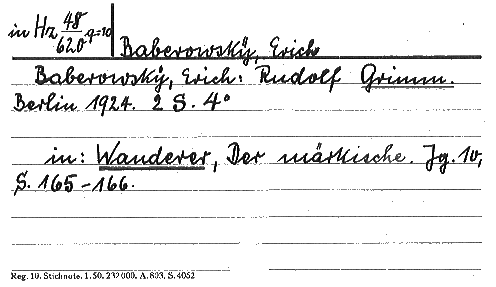 in Hz 48/620 q=10
Baberowskÿ, Erich
Baberowskÿ, Erich: Rudolf Grimm.
Berlin 1924. 2 S. 4°
in: Wanderer, Der märkische. Jg. 10,
S. 165-166.
Reg. 10. Stichnote. 1. 50. 232000. A. 803. S. 4052